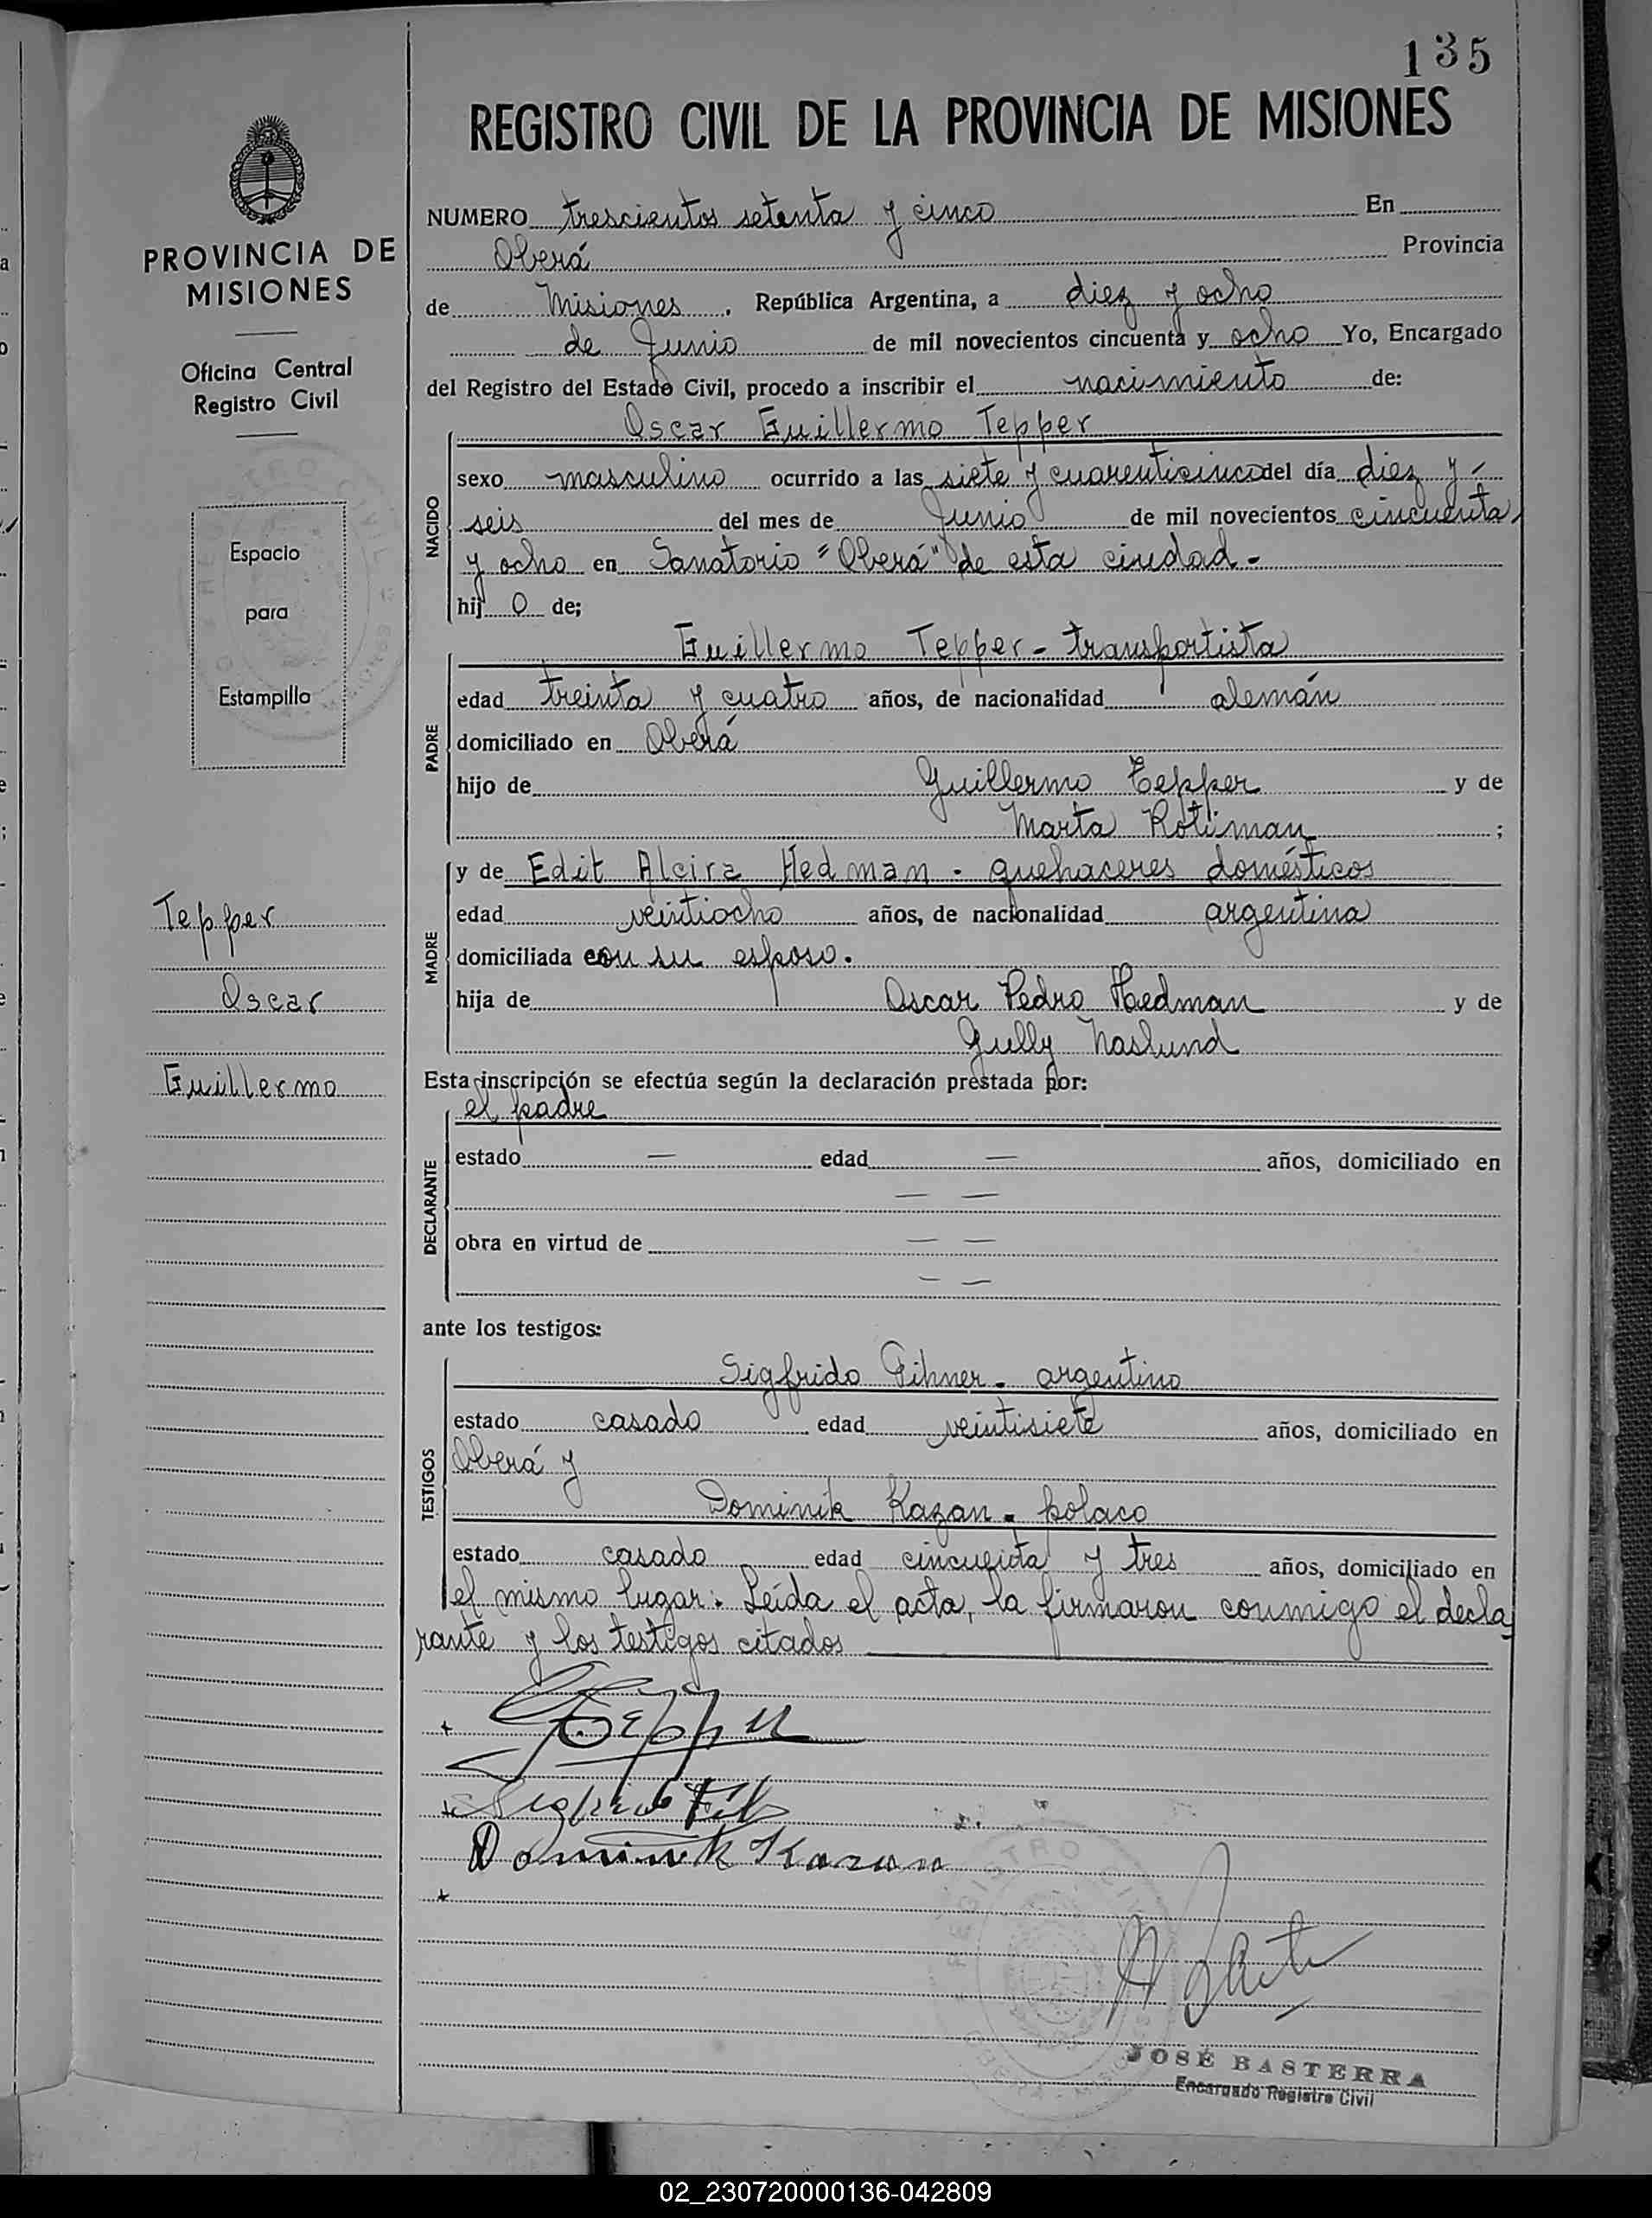 135
REGISTRO CIVIL DE LA PROVINCIA DE MISIONES
PROVINCIA DE
MISIONES
Oficina Central
Registro Civil
Espacio
para
Estampilla
Tepper
Oscar
Guillermo
NUMERO trescientos setenta y cinco En
Oberá Provincia
de Misiones, República Argentina, a diez y ocho
de Junio de mil novecientos cincuenta y ocho Yo, Encargado
del Registro del Estado Civil, procedo a inscribir el nacimiento de:
NACIDO
Oscar Guillermo Tepper
sexo masculino ocurrido a las siete y cuarenticinco del día diez y
seis del mes de Junio de mil novecientos cincuenta
y ocho en Sanatorio "Oberá" de esta ciudad.-
hij o de;
PADRE
Guillermo Tepper - transportista
edad treinta y cuatro años, de nacionalidad alemán
domiciliado en Oberá
hijo de Guillermo Tepper y de
Marta ;
MADRE
y de Edit Alcira Hedman - quehaceres domésticos
edad veintiocho años, de nacionalidad argentina
domiciliada con su esposo.
hija de Oscar Pedro Hedman y de
Gully Naslund
Esta inscripción se efectúa según la declaración prestada por:
DECLARANTE
el padre
estado — edad — años, domiciliado en
— —
obra en virtud de — —
— —
ante los testigos:
TESTIGOS
Sigfrido - argentino
estado casado edad veintisiete años, domiciliado en
Oberá y
Dominik Kazan - polaco
estado casado edad cincuenta y tres años, domiciliado en
el mismo lugar. Leída el acta, la firmaron conmigo el decla
rante y los testigos citados
Tepper
Dominik Kazan
REGISTRO CIVIL
JOSÉ BASTERRA
Encargado Registro Civil
02_230720000136-042809